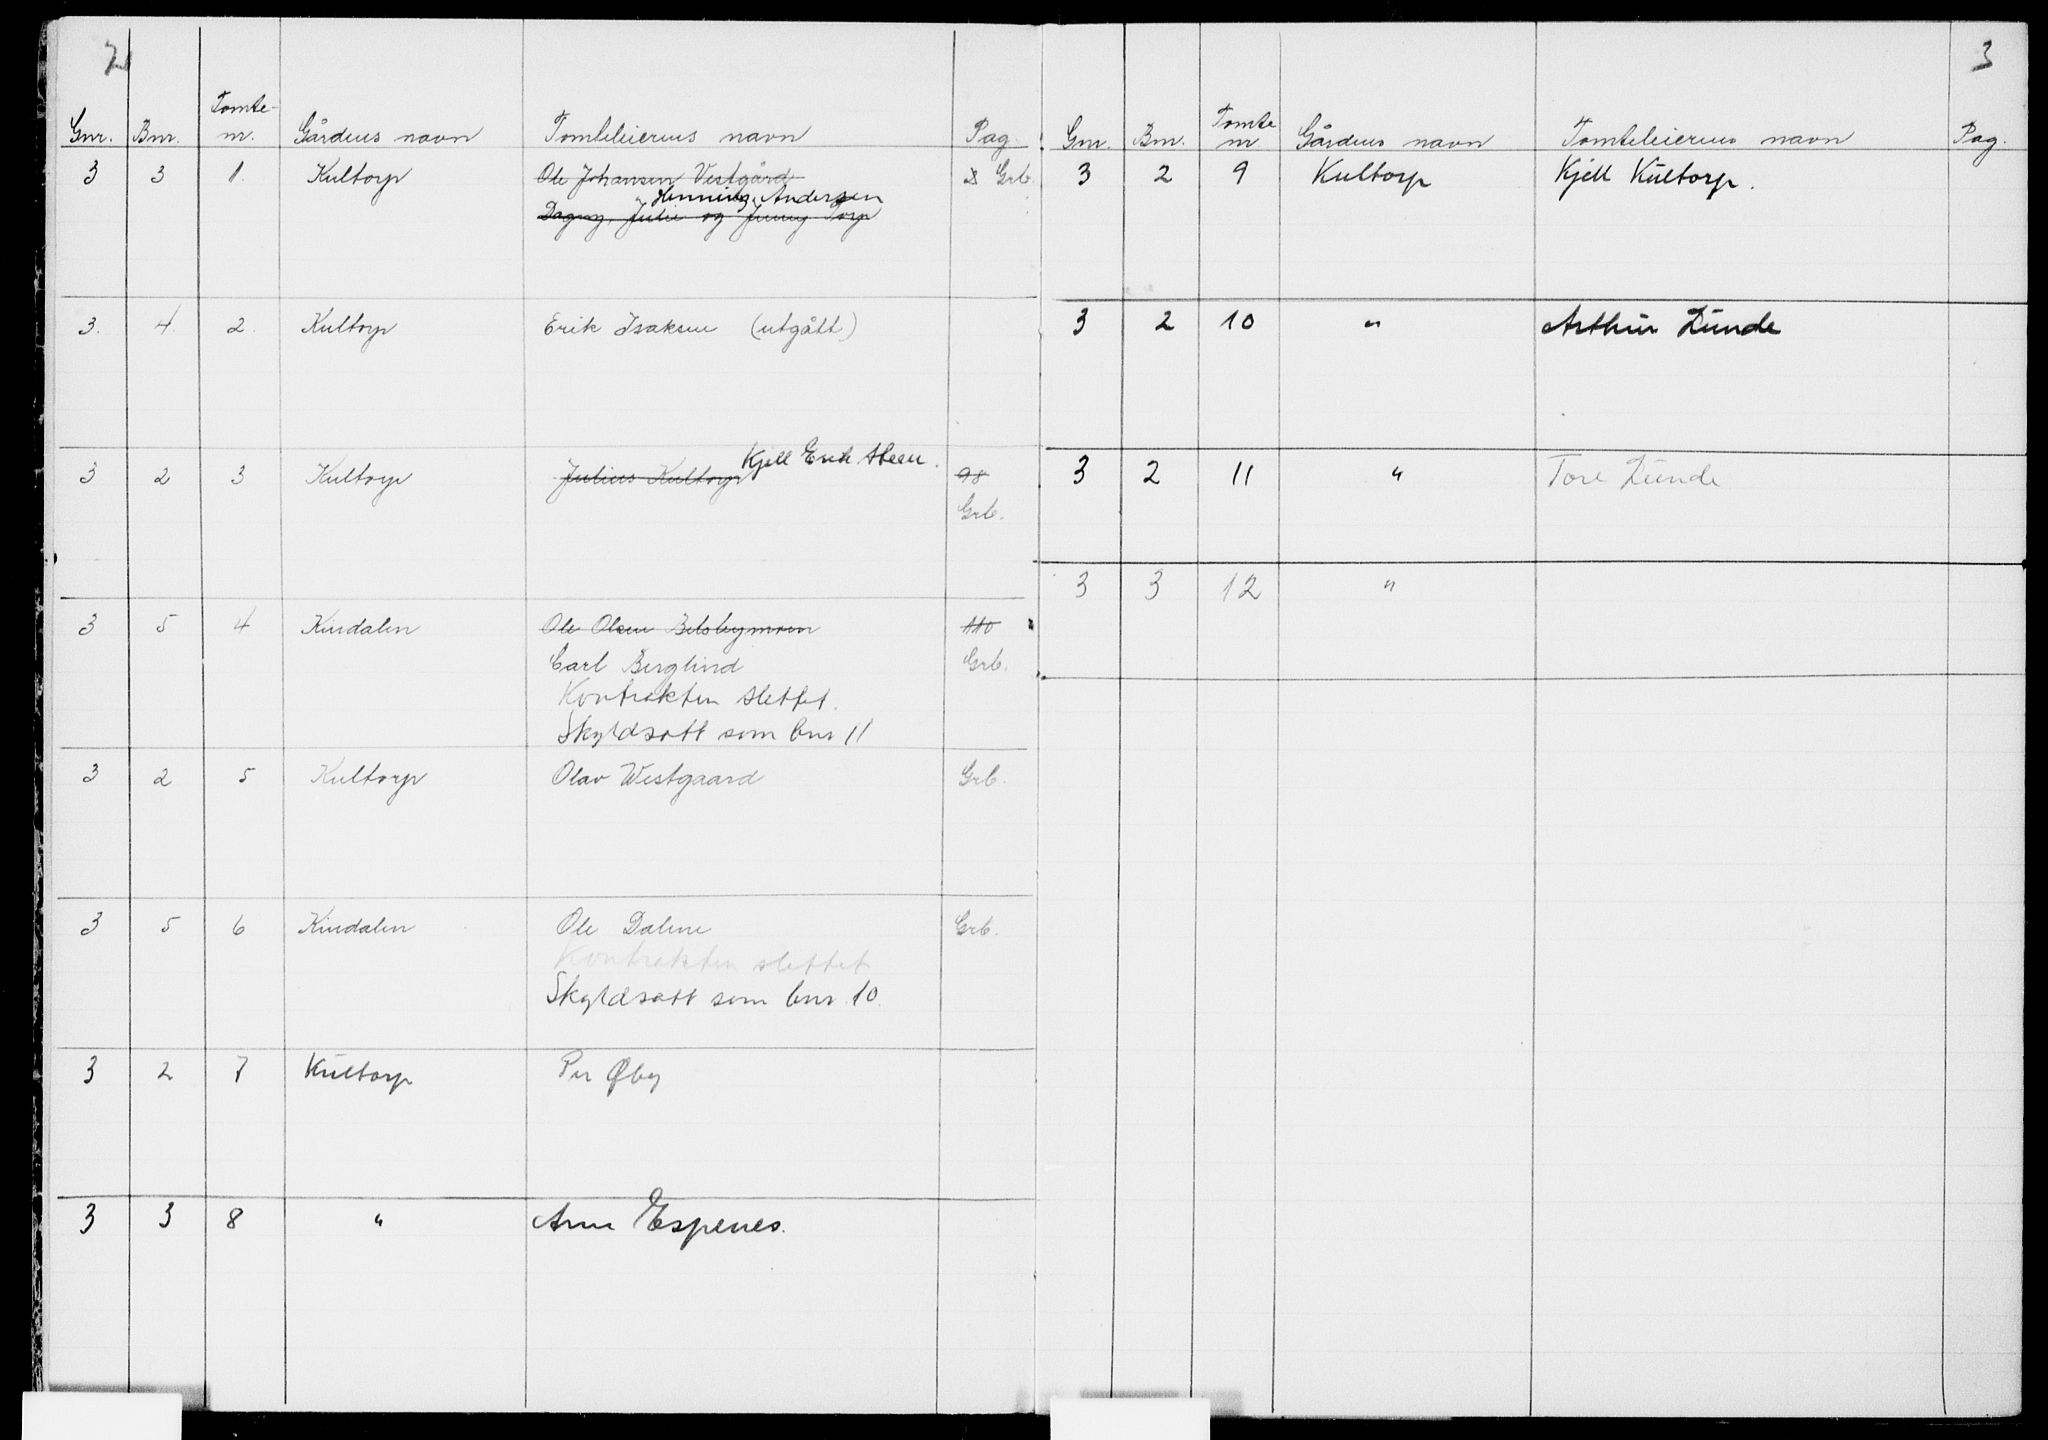 2
Gnr. Bnr. Tomte-nr. Gårdens navn Tomteleierens navn Pag.
3 3 1. Kultorp Ole Johansen Vestgård Grb.
Henning Andersen
Dagny, Julie og Jenny Torp
3. 4. 2. Kultorp Erik Isaksen (utgått)
Kjell Erik Steen.
3 2 3 Kultorp Julius Kultorp 98
Grb.
3 5 4 Kindalen Ole Olsen 110
Carl Berglind Grb.
Kontrakten slettet.
Skyldsatt som bnr 11
3 2 5 Kultorp Olav Westgaard Grb.
3 5 6 Kindalen Ole Dalene Grb.
Kontrakten slettet
Skyldsatt som bnr. 10.
3 2 7 Kultorp Per Øby
3 3 8 " Arne Espenes.
3
Gnr. Bnr. Tomte nr Gårdens navn Tomteleierens navn Pag.
3 2 9 Kultorp Kjell Kultorp.
3 2 10 " Arthur Lunde
3 2 11 " Tore Lunde
3 3 12 "